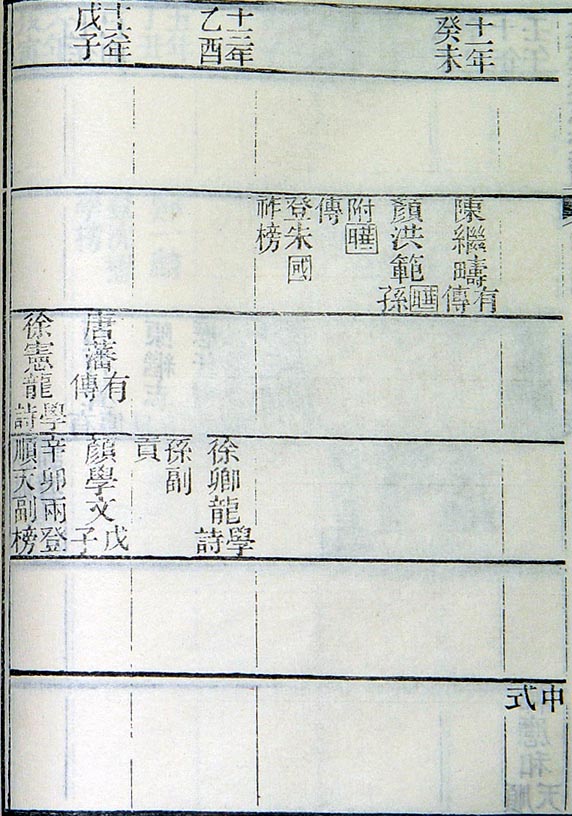 十一年
癸未
十三年
乙酉
十六年
戊子
陳繼疇有
傳
顏洪範
孫
附
傳
登朱國
祚榜
唐藩有
傳
徐憲龍學
詩
徐卿龍學
詩
孫副
貢
顏學文戊
子
辛卯兩登
順天副榜
中式